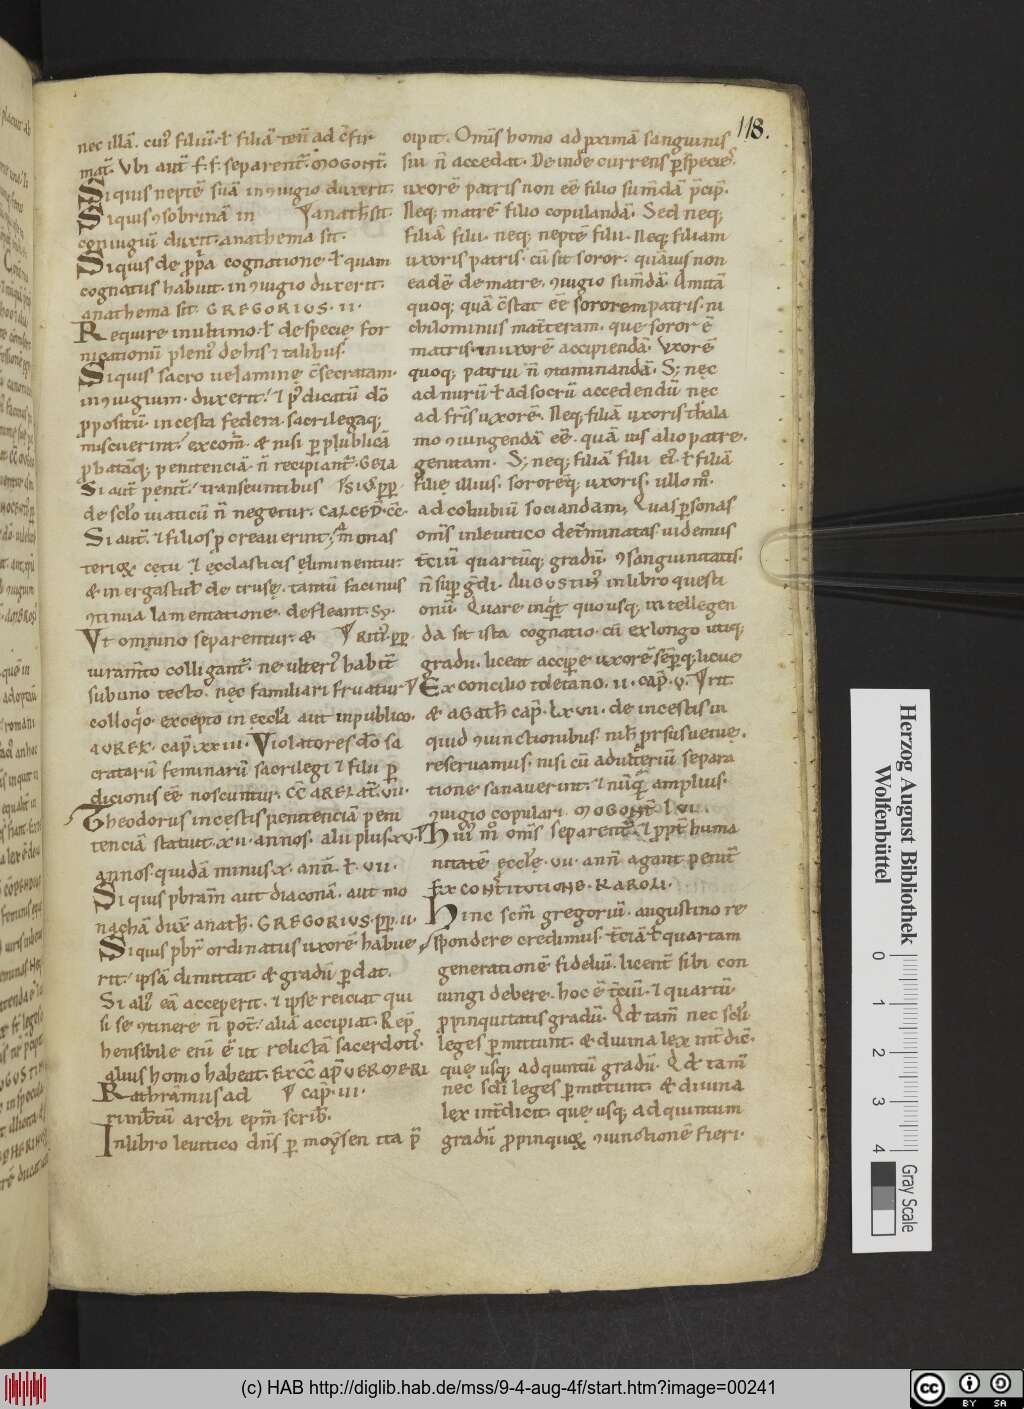 118.
nec illā. cui᷒ filiū. ł filiā ten̄ ad c̄fir
mat̄. Ubi aut̄ f. f. separent̄. MOGONT̄.
Si quis neptē suā in ꝯiugio duxerit.
Si quis ꝯsobrinā in anath̄. sit.
coniugiū duxit. anathema sit.
Si quis de ꝓp̄a cognatione. ł quam
cognatus habuit. in ꝯiugio duxerit.
anathema sit. GREGORIUS. II.
Require in ultimo. ł de specie for
nicationū pleni᷒ de his ⁊ talibus.
Si quis sacro uelamine c̄secratam.
in ꝯiugium. duxerit. ⁊ p̄dicatū dō
ꝓpositū. incesta federa. sacrilegaq;
miscuerint. excom̄. & nisi ꝑ publicā
ꝓbatāq; penitenciā. n̄ recipiant̄. GELA
Si aut̄ penit̄. transeuntibus
de sclo uiaticū n̄ negetur. CALCED̄. C̄C̄.
Si aut̄. ⁊ filios ꝓcreauerint, monas
terioꝝ. cetu ⁊ ecclasticis eliminentur.
& in ergastul̄ detruse. tantū facinus
ꝯtinua lamentatione. defleant. Sy.
Ut omnino separentur. &
iuram̄to colligant̄. ne ulteri᷒ habit̄
sub uno tecto. nec familiari fruatur
colloq̊o. excepto in eccl̄a aut in publico.
AUREL̄. cap̄. xxiii. Violatores d̄o sa
cratarū feminarū sacrilegi ⁊ filii ꝑ
dicionis eē noscuntur. C̄C̄ ARELAT̄. VII.
Theodorus incestis penitenciā peni
tenciā statuit. xii. annos. alii plus xv.
annos. quidā minus. x. ann̄. ł. VII.
Si quis pb̄ram̄ aut diaconā. aut mo
nachā dux̄ anath̄. GREGORIUS. ꝑp. ii.
Si quis pb̄r ordinatus uxorē habue
rit. ipsā dimittat. & gradū ꝑdat.
Si ali᷒ eā acceperit. ⁊ ipse reiciat qui
si se ꝯtinere n̄ pot̄. aliā accipiat. Rep̄
hensibile enī ē ut relictā sacerdotis
alius homo habeat. EX C̄C̄ AP̄ VERMERI
Rathramus ad cap̄. iii.
rimb̄tū archi ep̄m scrib̄.
In libro leuitico dn̄s ꝑ moysen ita p̄
cipit. Omis homo ad ꝓximā sanguinis
sui n̄ accedat. Deinde currens ꝑ species.
uxorē patris non eē filio sum̄dā p̄cip̄.
Neq; matrē filio copulandā. Sed neq;
filiā filii. neq; neptē filii. Neq; filiam
uxoris patris. cū sit soror. quāuis non
eadē de matre. ꝯiugio sum̄dā. Amitā
quoq; quā c̄stat eē sororem patris. ni
chilominus mat̄teram. que soror ē
matris. in uxorē accipiendā. Uxorē
quoq; patrui n̄ ꝯtaminandā. S; nec
ad nurū ł ad socrū accedendū nec
ad fr̄is uxorē. Neq; filiā uxoris thala
mo ꝯiungendā eē. quā ius alio patre.
genitam. S; neq; filiā filii ei᷒. ł filiā
filie illius. sororēq; uxoris. ullo m̊.
ad conubiū sociandam, Quas psonas
omīs in leuitico det̄minatas uidemus
t̄ciū quartūq; gradū. ꝯsanguinitatis.
n̄ sup̄ g̊di. AUGUSTIN᷒ in libro questi
onū. Quare inq̇t quousq; intellegen
da sit ista cognatio. cū ex longo utiq;
gradu. liceat accipe uxorē sēpq; licue
Ex concilio toletano. ii. cap̄. v. rit
& AGATH̄ cap̄. LXVII. de incestis in
quid ꝯiunctionibus. nih̄l ꝓrsus uenie.
reseruamus. nisi cū adulteriū separa
tione sanauerint. ⁊ nūq̄ amplius.
ꝯiugio copulari. MOGONT̄. LVI.
Hui᷒ m̊ omīs separent̄. & ꝓpt̄ huma
nitatē eccl̄e. VII. ann̄ agant penit̄
EX CONSTITUTIONE. KAROLI.
Hinc scm̄ gregoriū. augustino re
spondere credimus. t̄ciā ł quartam
generationē fideliū. licent̄ sibi con
iungi debere. hoc ē t̄ciū. ⁊ quartū
ꝓpinquitatis gradū. Qd tam̄ nec scl̄i
leges ꝑmittunt. & diuina lex int̄dic̄.
que usq; ad quintū gradū. Qd tam̄
nec scl̄i leges ꝑmittunt. & diuina
lex int̄dicit. que usq; ad quintum
gradū ꝓpinquoꝝ ꝯiunctionē fieri.
Herzog August Bibliothek
Wolfenbüttel
0 1 2 3 4
Gray Scale
(c) HAB http://diglib.hab.de/mss/9-4-aug-4f/start.htm?image=00241
cc BY SA